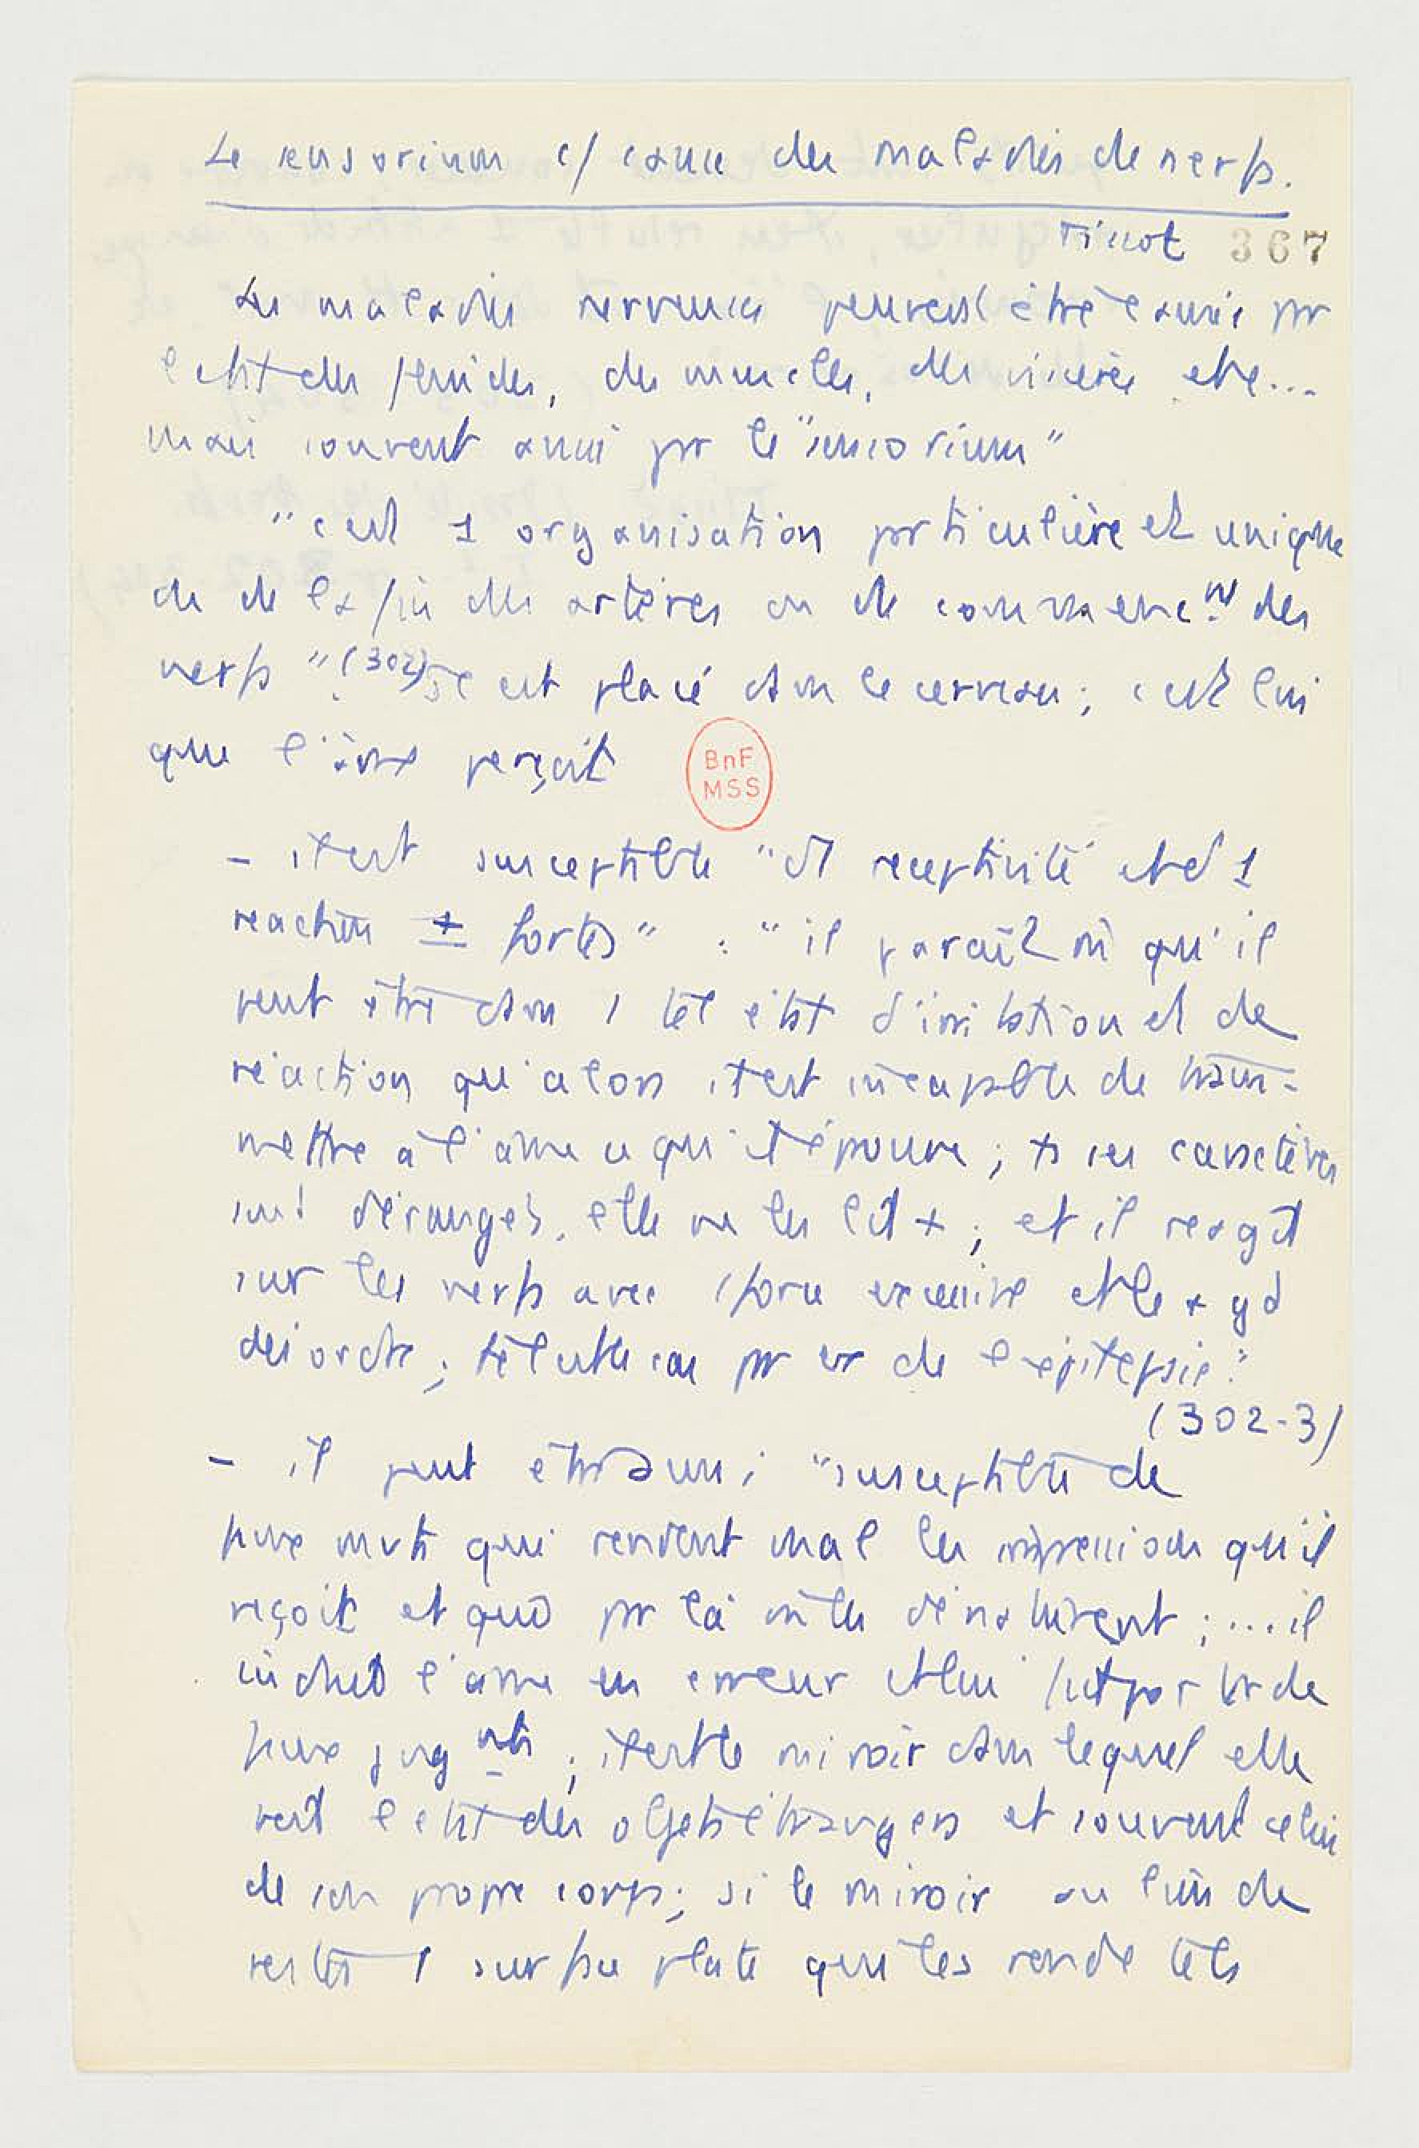 Le sensorium c/ cause des maladies de nerfs.
Tissot 367
Les maladies nerveuses peuvent être causées pr
l'état des fluides, des muscles, des viscères etc...
mais souvent aussi pr le "sensorium"
"c'est 1 organisation particulière et unique
de la fin des artères ou de commencemt des
nerfs" (302) est placé dans le cerveau ; c'est lui
que l'âme perçoit
BnF
MSS
- il est susceptible "de réceptivité et d'1
réaction ± fortes" : "il paraît qu'il
peut être dans 1 tel état d'irritation et de
réaction qu'alors il est incapable de trans-
mettre à l'âme ce qu'il éprouve ; ts ses caractères
sont dérangés, elle ne les lit + ; et il réagit
sur les nerfs avec 1 force excessive et le + gd
désordre ; tel est le cas pr ex de l'épilepsie."
(302-3)
- il peut être aussi "susceptible de
faux mvts qui rendent mal les impressions qu'il
reçoit et qui pr là les dénaturent ; ... il
induit l'âme en erreur et lui fait porter de
faux jugmts ; il est le miroir dans lequel elle
voit l'état des objets étrangers et souvent celui
de son propre corps ; si le miroir au lieu de
rester 1 surface plate qui les rende tels